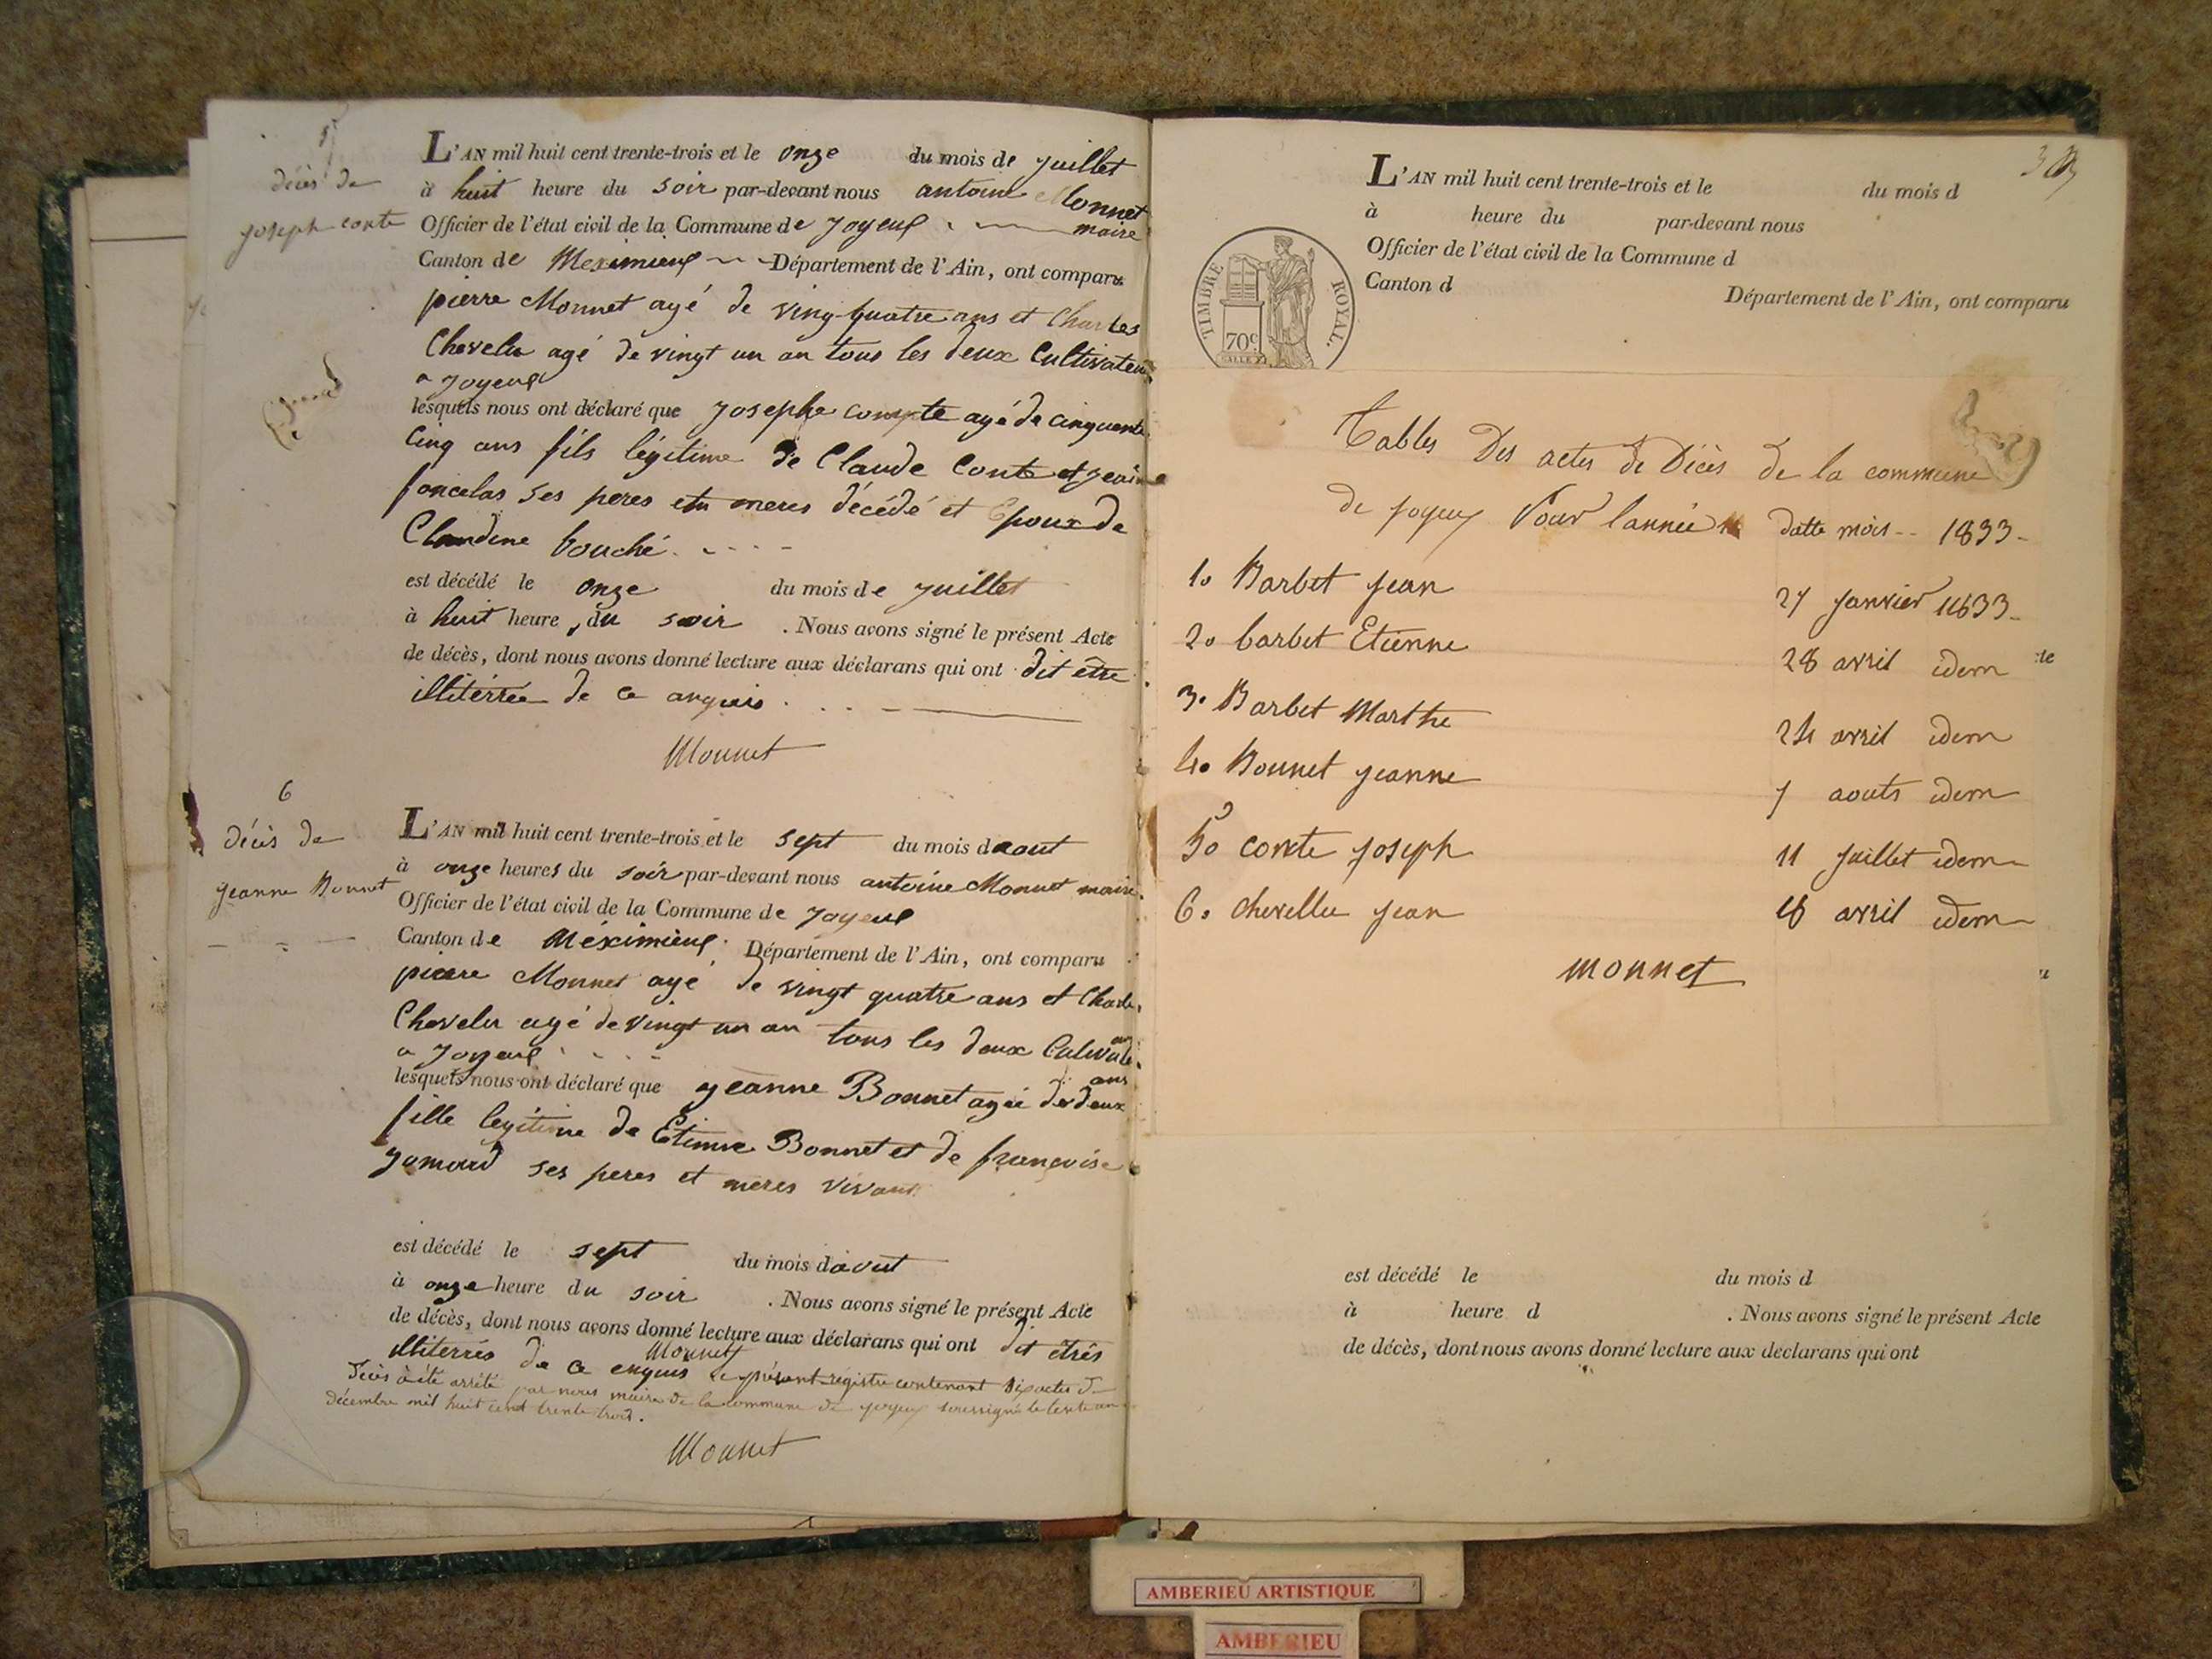 5
décès de
joseph conte
L'AN mil huit cent trente-trois et le onze du mois de juillet
à huit heure du soir par-devant nous antoine Monnet
maire
Officier de l'état civil de la Commune de joyeux
Canton de Meximieux Département de l'Ain, ont comparu
pierre Monnet agé de ving quatre ans et Charles
Chevelu agé de vingt un an tous les deux Cultivateur
a joyeux
lesquels nous ont déclaré que josephe compte agé de cinquente
cinq ans fils légitime de Claude Conte et jeanne
foncelas ses peres et meres décédé et Epoux de
Claudine bouché
est décédé le onze du mois de juillet
à huit heure du soir . Nous avons signé le présent Acte
de décès, dont nous avons donné lecture aux déclarans qui ont dit etre
illitérrée de ce anquis
Monnet
6
décès de
jeanne Bonnet
L'AN mil huit cent trente-trois et le sept du mois daout
à onze heures du soir par-devant nous antoine Monnet maire
Officier de l'état civil de la Commune de joyeux
Canton de Méximieux Département de l'Ain, ont comparu
pierre Monnet agé de vingt quatre ans et Charles
Chevelu agé de vingt un an tous les deux
a joyeux
lesquels nous ont déclaré que jeanne Bonnet agée de deux
ans
fille legitime de Etienne Bonnet et de françoise
jomard ses peres et meres vivant
est décédé le sept du mois daout
à onze heure du soir . Nous avons signé le présent Acte
de décès, dont nous avons donné lecture aux déclarans qui ont dit êtres
illiterrés de ce enquis
Monnet
le présent régistre contenant six actes de
décès à été arrété par nous maire de la commune de joyeux soussigné le trente un
décembre mil huit cent trente trois.
Monnet
L'AN mil huit cent trente-trois et le du mois d
à heure du par-devant nous
Officier de l'état civil de la Commune d
Canton d
Département de l'Ain, ont comparu
TIMBRE ROYAL.
70c
Tables Des actes de Décès de la commune
de joyeux Pour lannée datte mois -- 1833-
1o Barbet jean 27 janvier 1833-
2o barbet Etienne 28 avril idem
te
3o Barbet Marthe 24 avril idem
4o Bonnet jeanne 7 aouts idem
5o conte joseph 11 juillet idem
6o chevellu jean 18 avril idem
monnet
est décédé le du mois d
à heure d . Nous avons signé le présent Acte
de décès, dont nous avons donné lecture aux declarans qui ont
AMBERIEU ARTISTIQUE
AMBERIEU